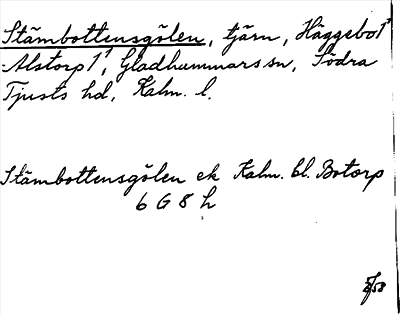 Stämbottensgölen, tjärn, Häggebo 1¹
-Alstorp 1¹, Gladhammars sn, Södra
Tjusts hd, Kalm. l.
Stämbottensgölen ek Kalm. bl. Botorp
6 G 8 h